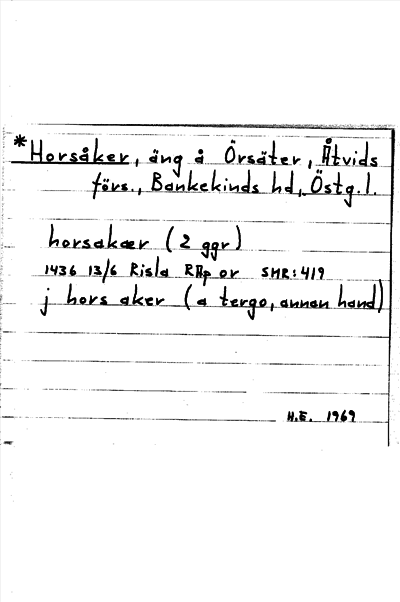 * Horsåker, äng å Örsäter, Åtvids
förs., Bankekinds hd, Östg.l.
horsakær (2 ggr)
1436 13/6 Risla RAp or SMR:419
j hors aker (a tergo, annan hand)
H.E. 1969